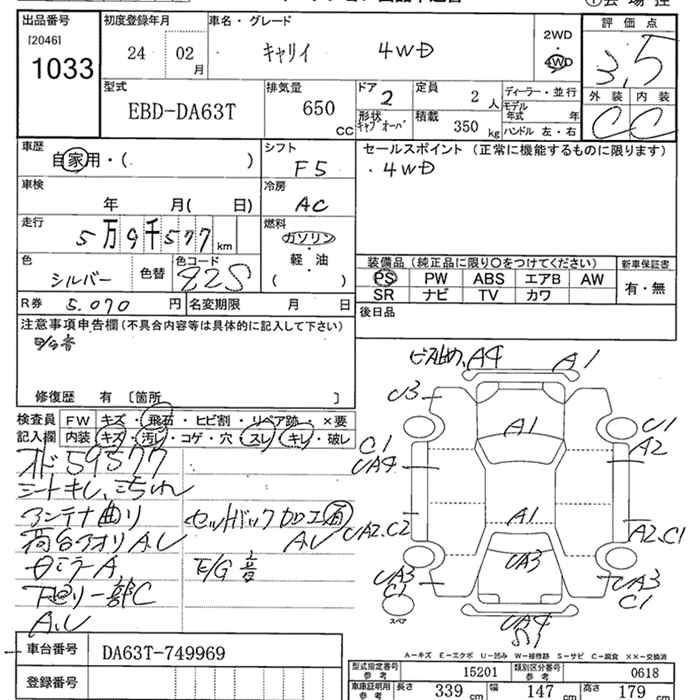 出品番号
[2046]
1033
初度登録年月
24 02 月
車名・グレード
キャリイ 4WD
2WD
4WD
評価点
3.5
外装 内装
C C
型式
EBD-DA63T
排気量
650 CC
ドア
2
形状
キャブオーバ
定員
2 人
積載
350 kg
ディーラー・並行
モデル
年式 年
ハンドル 左・右
車歴
自家用・( )
シフト
F5
セールスポイント (正常に機能するものに限ります)
・4WD
車検
年 月( 日)
冷房
AC
走行
5万9千577 km
燃料
ガソリン
軽・油
( )
色
シルバー
色替
色コード
Z2S
装備品 (純正品に限り○をつけてください)
新車保証書
PS PW ABS エアB AW
SR ナビ TV カワ
有・無
R券 5,070 円
名変期限 月 日
後日品
注意事項申告欄(不具合内容等は具体的に記入して下さい)
修復歴 有 〔箇所 〕
検査員
記入欄
FW キズ・飛石・ヒビ割・リペア跡・×要
内装 キズ・汚レ・コゲ・穴・スレ・キレ・破レ
オド59577
シートキレ、こわれ
アンテナ曲り
荷台アオリA,U
セットバック加工有
A,U
ミラーA
E/G音
下廻り一部C
A,U
ビス止め、A4
A1
U3
A1
U1
C1
UA4
A2
A1
UA2,C2
A2,C1
UA3
UA3
C1
UA3
C1
スペア
UA4
S1
A-キズ E-エクボ U-凹み W-補修跡 S-サビ C-腐食 ××-交換済
車台番号
DA63T-749969
登録番号
型式指定番号
参考
15201
類別区分番号
参考
0618
車庫証明用
参考
長さ 339 cm
幅 147 cm
高さ 179 cm